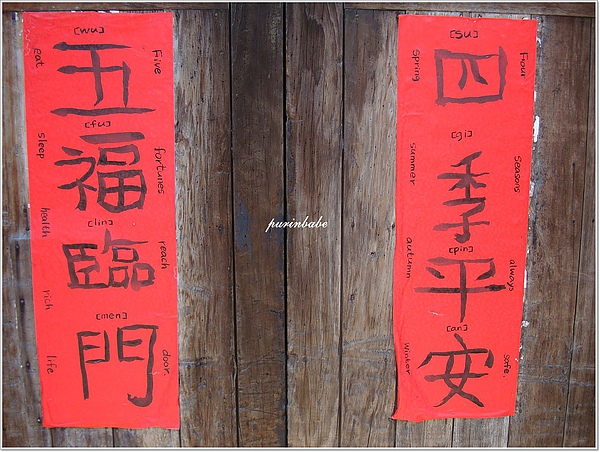 [su]
四
[gi]
季
[pin]
平
[an]
安
Four
seasons
always
safe.
spring
summer
autumn
winter
[wu]
五
[fu]
福
[lin]
臨
[men]
門
Five
fortunes
reach
door.
eat
sleep
health
rich
life
purinbabe